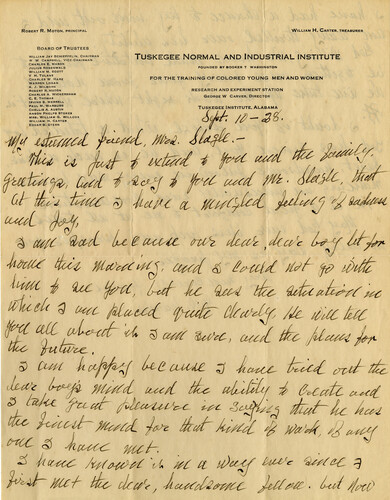 ROBERT R. MOTON, PRINCIPAL
WILLIAM H. CARTER, TREASURER
BOARD OF TRUSTEES
WILLIAM JAY SCHIEFFELIN, CHAIRMAN
TUSKEGEE NORMAL AND INDUSTRIAL INSTITUTE
FOUNDED BY BOOKER T. WASHINGTON
FOR THE TRAINING OF COLORED YOUNG MEN AND WOMEN
RESEARCH AND EXPERIMENT STATION
GEORGE W. CARVER, DIRECTOR
TUSKEGEE INSTITUTE, ALABAMA
Sept. 10-28.
My esteemed friend, Mrs. Slagle:-
This is just to extend to you and the family
greetings, and to say to you and Mr. Slagle, that
at this time I have a mingled feeling of sadness
and joy.
I am sad because our dear, dear boy left for
home this morning, and I could not go with
him to see you, but he sees the situation in
which I am placed quite clearly. He will tell
you all about it I am sure, and the plans for
the future.
I am happy because I have tried out the
dear boys mind and the ability to create and
I take great pleasure in saying that he has
the finest mind for that kind of work, of any
one I have met.
I have known it in a way ever since I
first met the dear, handsome fellow. but now